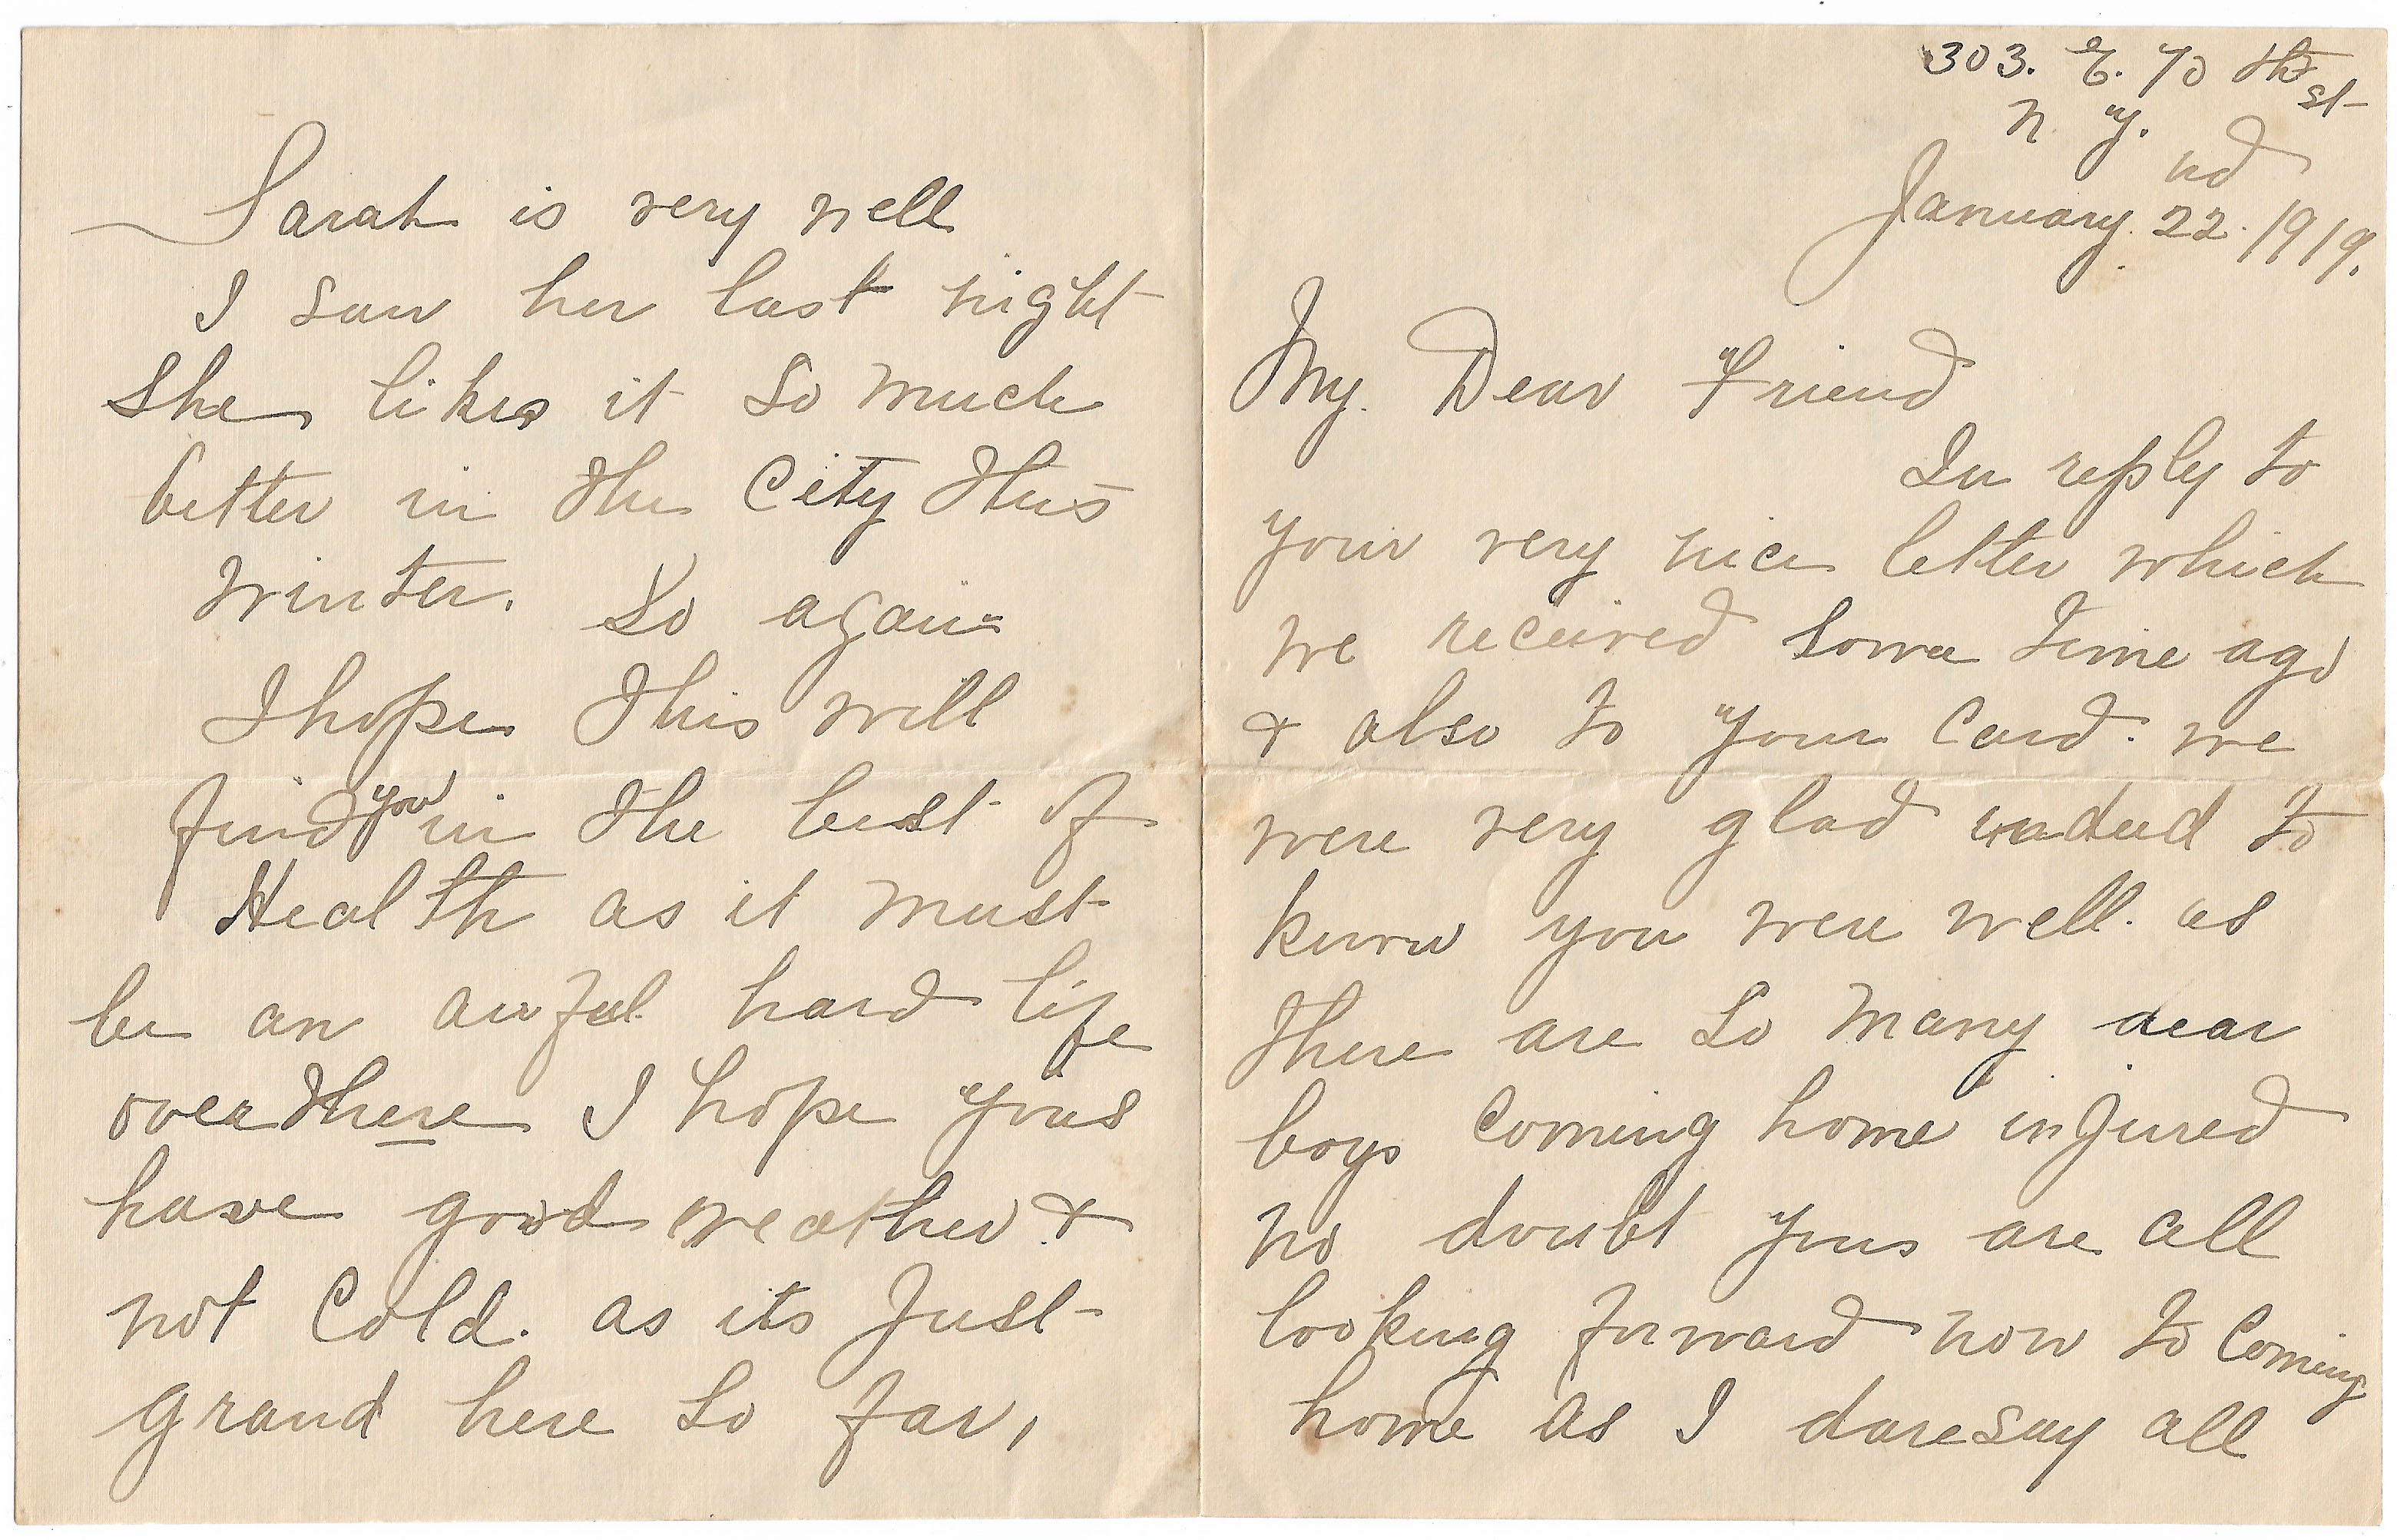 303. E. 70 th st
N. Y.
January. 22. nd 1919.
My. Dear Friend
In reply to
your very nice letter which
we received some time ago
& also to your Card. we
were very glad indeed to
know you were well. as
there are so many dear
boys coming home injured
no doubt yous are all
looking forward now to Coming
home as I daresay all
Sarah is very well
I saw her last night
She likes it so much
better in the City this
winter. So again
I hope this will
find you in the best of
Health as it must
be an awful hard life
over there I hope yous
have good weather &
not Cold. as its Just
grand here so far,